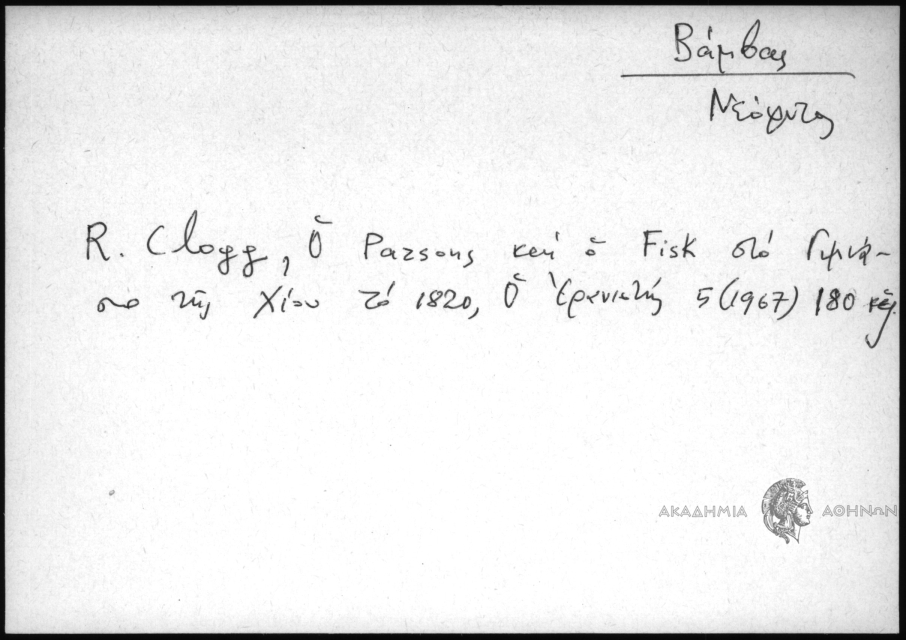 Βάμβας
Νεόφυτος
R. Clogg, Ὁ Parsons καὶ ὁ Fisk στό Γυμνά-
σιο τῆς Χίου τό 1820, Ὁ Ἐρανιστής 5 (1967) 180 κἑξ.
ΑΚΑΔΗΜΙΑ ΑΘΗΝΩΝ